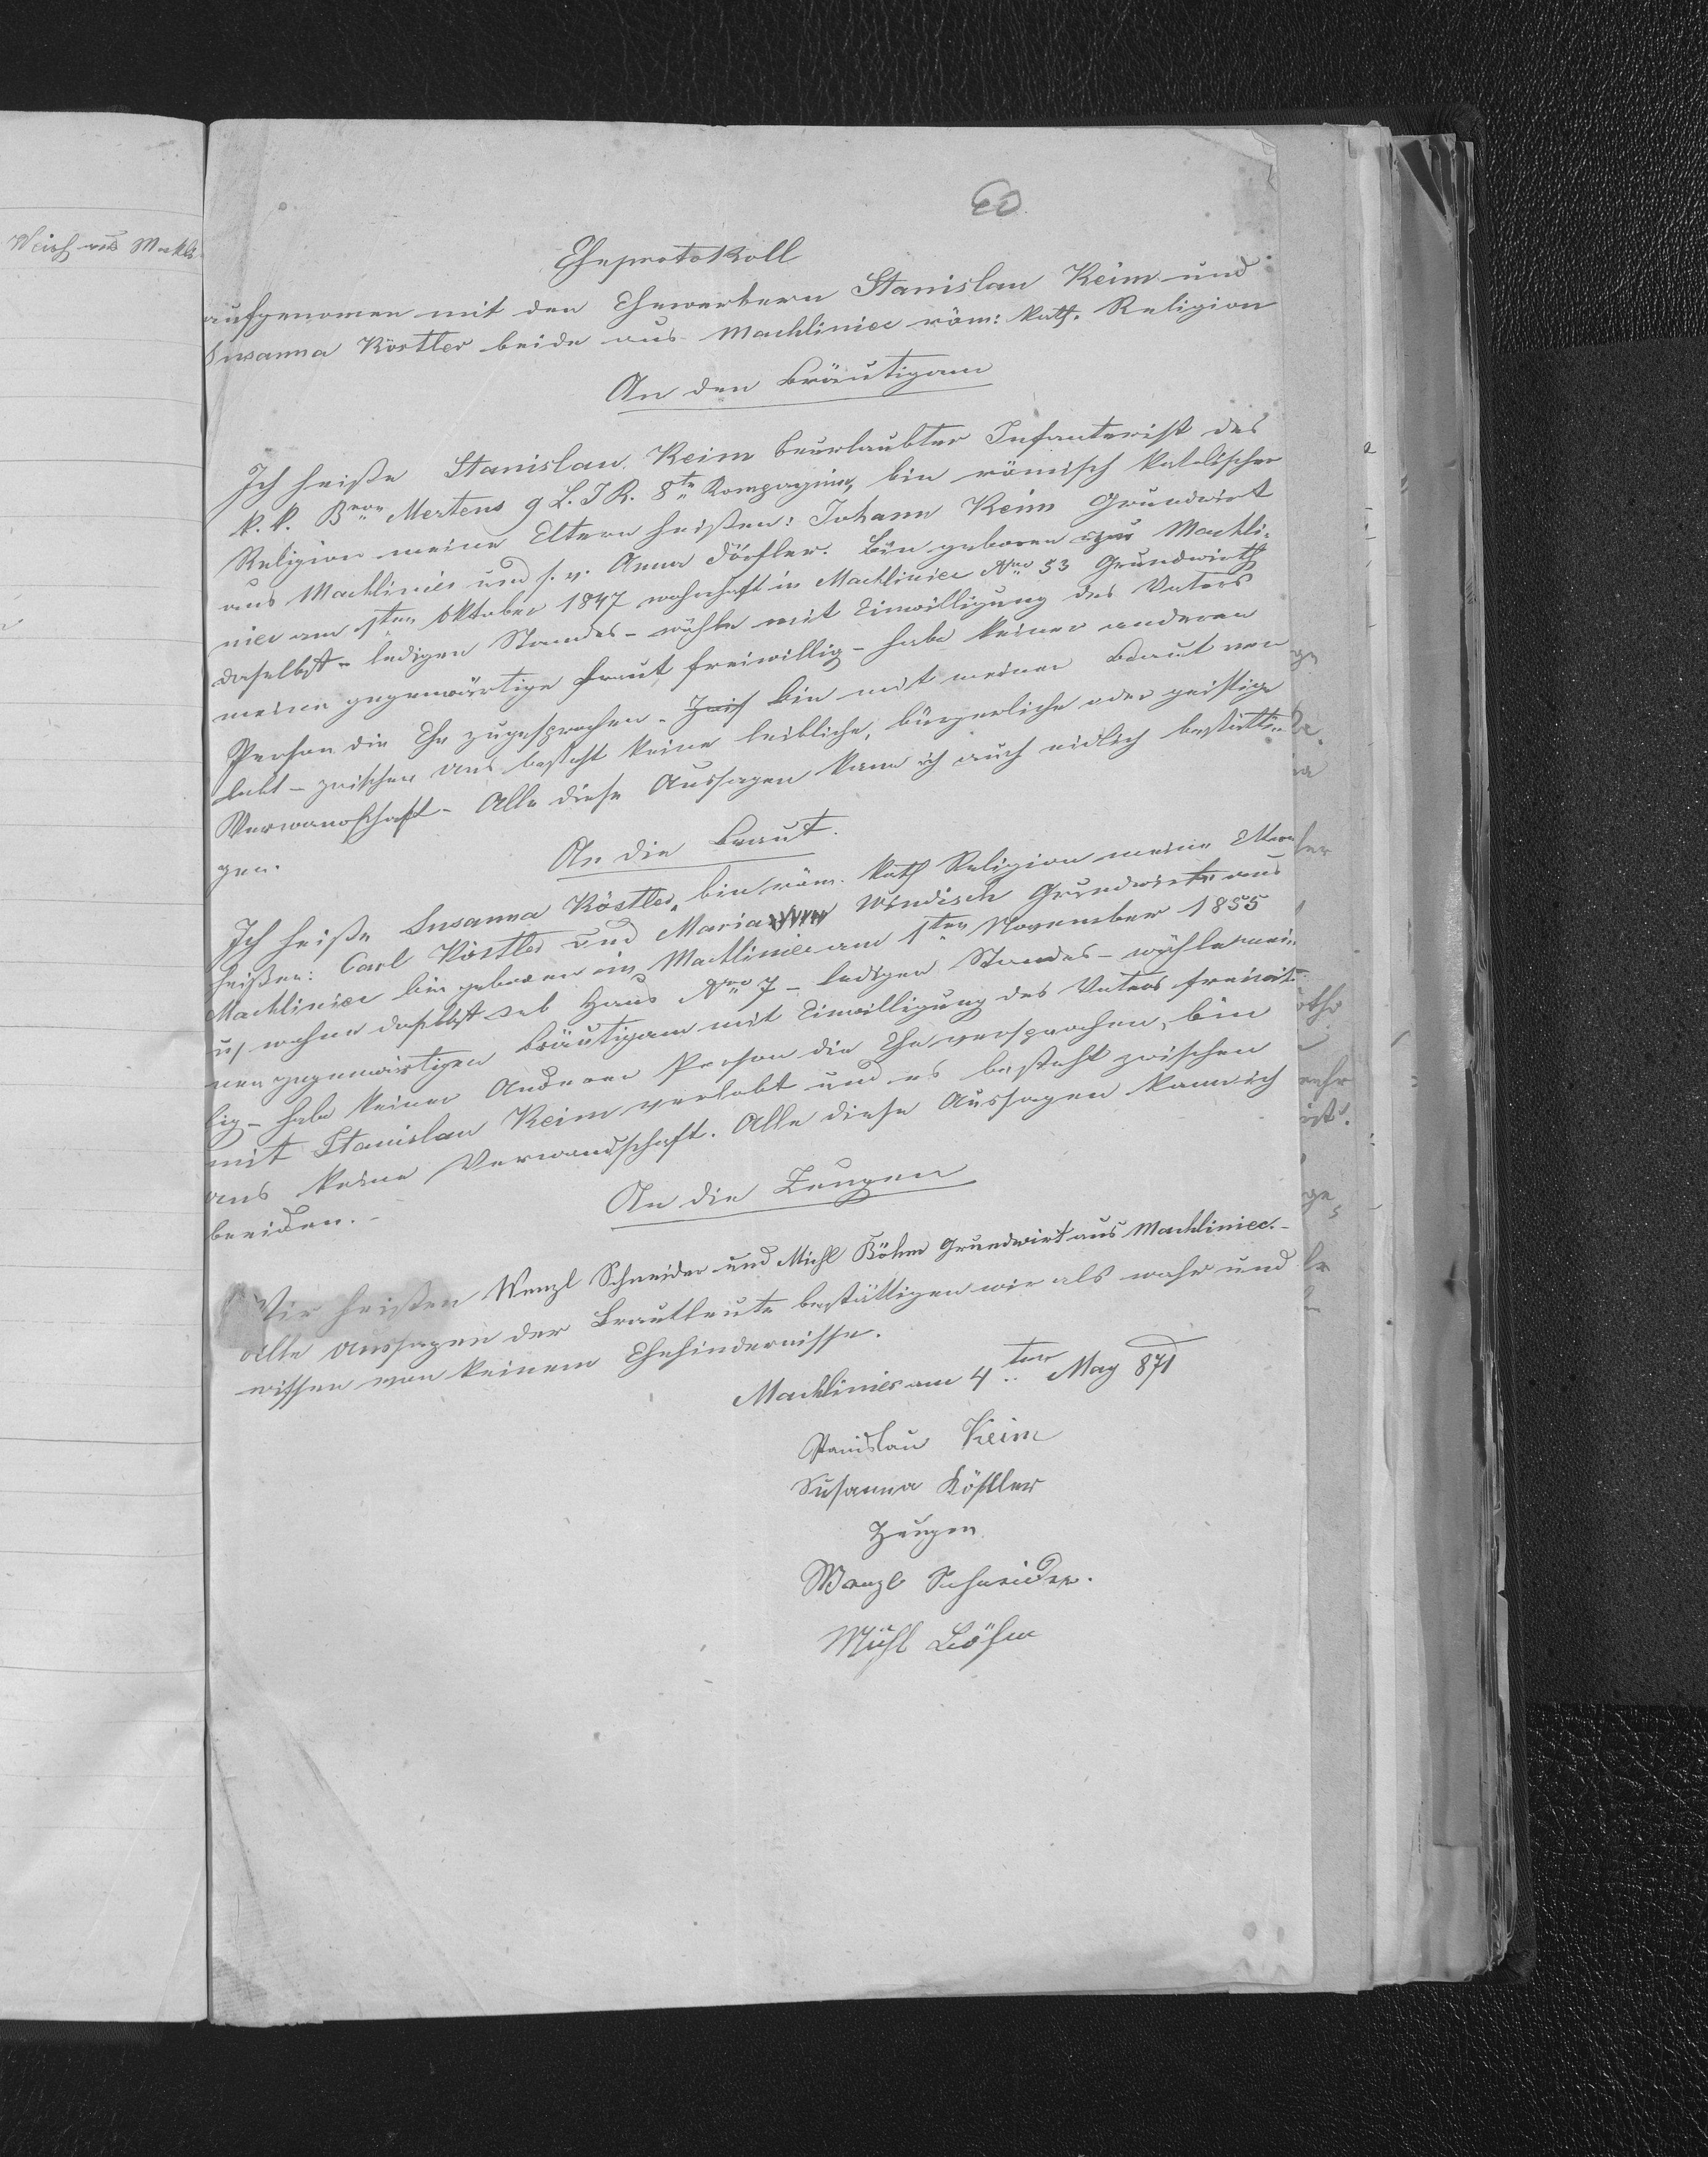 Weiß aus Machli
60
Eheprotokoll
aufgenomen mit den Ehewerbern Stanislau Keim und
Susanna Köstler beide aus Machliniec röm: kath. Religion
An den Bräutigam
Ich heiße Stanislau Keim beurlaubter Infanterist des
k. k. Bron Mertens 9 L. I R. 8te Kompagnie, bin römisch katolischer
Religion meine Eltern heißen: Johann Keim Grundwirt
aus Machliniec und s. v. Anna Dörfler. Bin geboren zu Machli-
niec am 1ten Oktober 1847 wohnhaft in Machliniec Nro 53 Grundwirth
daselbst - ledigen Standes - wähle mit Einwilligung des Vaters
meine gegenwärtige Braut freiwillig - habe keiner anderen
Person die Ehe zugesprochen - bin mit meiner Braut ver
lobt - zwischen uns besteht keine leibliche, bürgerliche oder geistige
Verwandschaft - Alle diese Aussagen kann ich auch eidlich bestätti-
gen.
An die Braut.
Ich heiße Susanna Köstler, bin röm. kath Religion meine Eltern
heißen: Carl Köstler und Maria Windisch Grundwirte aus
Machliniec bin geboren in Machliniec am 1ten November 1855
u, wohne daselbst sub Haus Nro 7 - ledigen Standes - wähle mei-
nen gegenwärtigen Bräutigam mit Einwilligung des Vaters freiwil-
lig - habe keiner Anderen Person die Ehe versprochen, bin
mit Stanislau Keim verlobt und es besteht zwischen
uns keine Verwandschaft. Alle diese Aussagen kann ich
beeiden. -
An die Zeugen
Wir heißen Wenzl Schneider und Michl Böhm Grundwirt aus Machliniec. -
Alle Aussagen der Brautleute bestättigen wir als wahr und
wissen von keinem Ehehindernisse.
Machliniec am 4ten May 871
Stanislau Keim
Susanna Köstler
Zeugen
Wenzl Schneider.
Michl Böhm